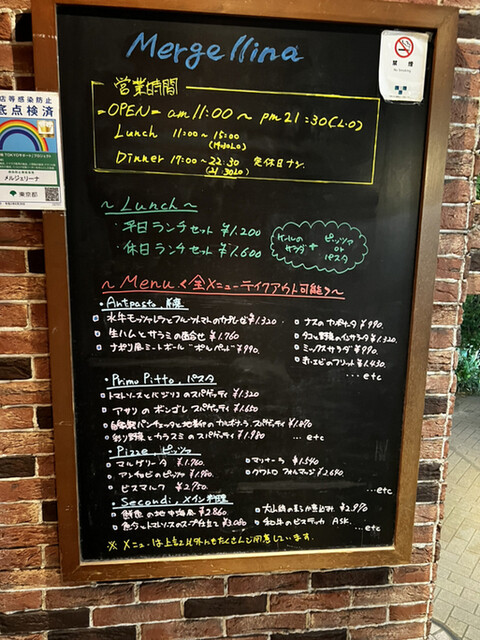 Mergellina
禁煙
No Smoking
営業時間
=OPEN= am 11:00 ~ pm 21:30 (L.O)
Lunch 11:00~15:00
(14:30LO)
Dinner 17:00~22:30 定休日ナシ
(21:30LO)
店等感染防止
底点検済
メルジェリーナ
東京都
~Lunch~
・平日ランチセット ¥1.200
・休日ランチセット ¥1.600
サラダ + ピッツァ
or
パスタ
~Menu <全メニューテイクアウト可能>~
・Antpasto, 前菜
水牛モッツァレラとフルーツトマトのカプレーゼ ¥1.320
生ハムとサラミの盛合せ ¥1.760
ナポリ風ミートボール "ポルペッテ" ¥990.
ナスのカポナータ ¥990.
タコと野菜のインサラータ ¥1.320.
ミックスサラダ ¥990.
赤エビのフリット ¥1.430.
...etc
・Primo Pitto, パスタ
トマトソースとバジリコのスパゲッティ ¥1.320
アサリのボンゴレ スパゲッティ ¥1.650
自家製パンチェッタと地養卵のカルボナーラ スパゲッティ
彩り野菜とカラスミのスパゲッティ ¥1.980 ... etc
・Pizze, ピッツァ
マルゲリータ ¥1.760.
アンチョビのピッツァ ¥1.980.
ビスマルク ¥2.750
マリナーラ ¥1.540
クワトロ フォルマッジ ¥2.640.
...etc
・Secondi, メイン料理
鮮魚の地中海風 ¥2.860
魚介とトマトソースのスープ仕立て ¥3.080
¥2.970
和牛のビステッカ ASK.
...etc
※ メニューは上記以外にもたくさんご用意しています.